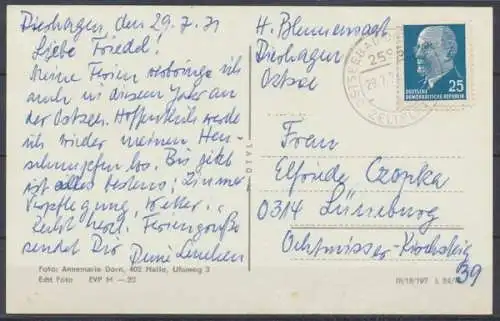 Dierhagen, den 29.7.71
Liebe Friedel!
Meine Ferien verbringe ich
auch in diesem Jahr an
der Ostsee. Hoffentlich werde
ich wieder meinen Heu-
schnupfen los. Bis jetzt
ist alles bestens; Zimmer
Verpflegung, Wetter.
Recht herzl. Feriengrüße
sendet Dir Deine Lenchen
H. Blumensaat
Dierhagen
Ostsee
OSTSEEBAD
25
29.7.71
DEUTSCHE
DEMOKRATISCHE REPUBLIK
25
Frau
Elfriede Czopka
0314 Lüneburg
Ochtmisser-Kirchsteig
39
Foto: Annemarie Dorn, 402 Halle, Ufuweg 3
Echt Foto EVP M —,20
III/18/197